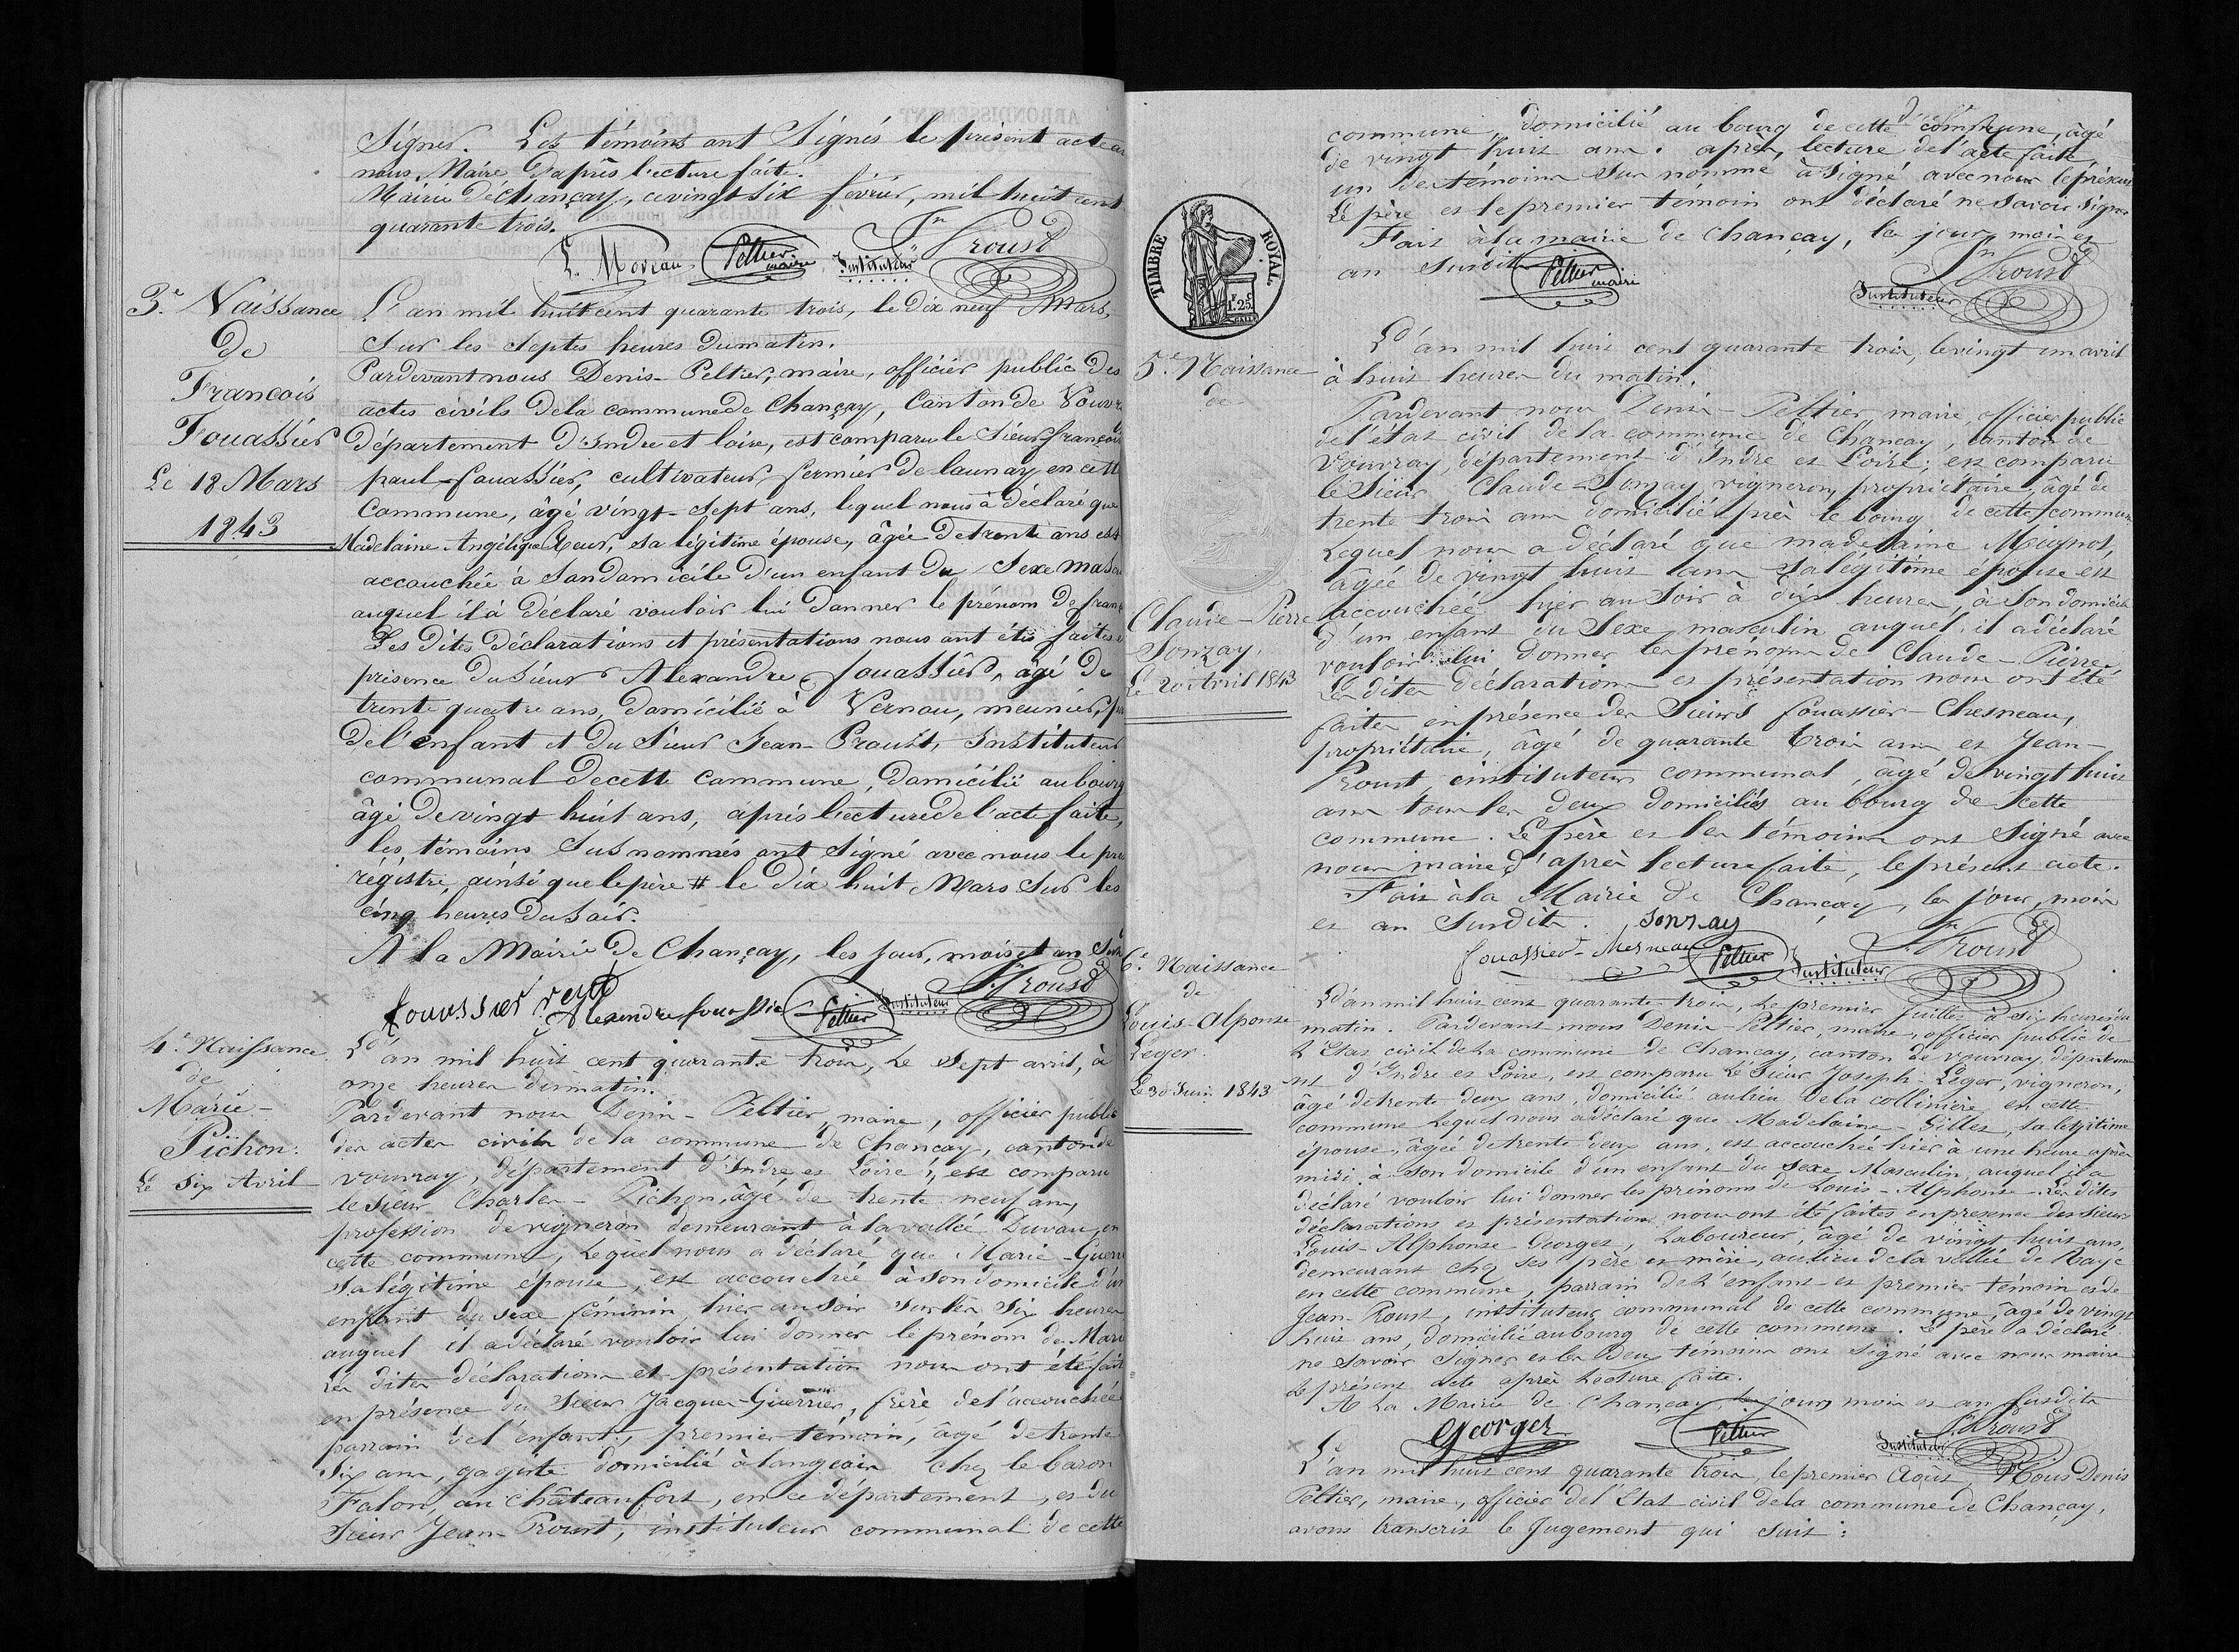 Signer. Les témoins ont Signés le présent acte
nous Maire D'après lecture faite.
Mairie de Chançay, ce vingt Six février, mil huit cent
quarante trois.
L. Moreau Peltier maire Instituteur Jn Proust
3.e Naissance
de
Francois
Fouassier
Le 18 Mars
1843
L'an mil huit cent quarante trois, le dix neuf Mars,
sur les septes heures du matin.
Pardevant nous Denis-Peltier, maire, officier public des
actes civils de la commune de Chançay, Canton de Vouvr
département d'Indre et loire, est comparu le Sieur françois
paul fouassier, cultivateur, fermier de launay en cette
Commune, âgé vingt-sept ans, lequel nous à déclaré que
Madelaine Angélique sa légitime épouse, âgée de trente ans est
accouchée à Son domicile d'un enfant du Sexe mascu
auquel il à déclaré vouloir lui donner le prénom de fran
Les dites déclarations et présentations nous ont étés faites
présence du Sieur Alexandre fouassier, âgé de
trente quatre ans, domicilié à Vernou, meunier,
de l'enfant et du Sieur Jean-Proust, Instituteur
communal de cette Commune, domicilié au bourg
âgé de vingt huit ans, après lecture de l'acte faite,
les témoins Sus nommés ont signé avec nous le pre
régistre ainsi que le père # le dix huit Mars Sur les
cinq heures du Soir.
A la Mairie de Chançay, les jour, mois et an Sus
fouassier Alexandre fouassier Peltier Instituteur Jn Proust
4.e Naissance
de
Marie-
Pichon.
Le Six Avril
L'an mil huit cent quarante trois, le Sept avril, à
onze heures du matin.
Pardevant nous Denis-Peltier, maire, officier public
des actes civils de la commune de Chançay, canton de
Vouvray, département d'Indre et Loire; est comparu
le Sieur Charles-Pichon, âgé de trente neuf ans,
profession de vigneron demeurant à la vallée Duvau, en
cette commune, lequel nous a déclaré que Marie-Guerri
Sa légitime épouse, est accouchée à Son domicile d'un
enfant du sexe féminin hier au Soir Sur les Six heures
auquel il a déclaré vouloir lui donner le prénom de Mari
Les dites déclaration et présentation nous ont été fait
en présence du Sieur Jacques-Guerrier, frère de l'accouchée
parrain de l'enfant, premier témoin, âgé de trente
Six ans, gagiste domicilié à langeais chez le baron
Falon, au châteaufort, en ce département, et du
Sieur Jean-Proust, instituteur communal de cette
commune, domicilié au bourg de cette commune, âgé
de vingt huit ans. après, lecture de l'acte faite,
un des témoins Sus nommé à Signé avec nous le présent
Le père et le premier témoin ont déclaré ne Savoir Signer
Fait à la mairie de Chançay, les jour, mois et
an Susdits Peltier maire Instituteur Jn Proust
TIMBRE ROYAL
1.25
5.e Naissance
de
Claude-Pierre
Sonzay.
Le 20 Avril 1843
L'an mil huit cent quarante trois, le vingt un avril
à huit heures du matin.
Pardevant nous Denis-Peltier, maire, officier public
de l'état civil de la commune de Chançay, canton de
Vouvray, département d'Indre et Loire; est comparu
le Sieur Claude-Sonzay, vigneron, propriétaire, âgé de
trente trois ans domicilié près le bourg de cette commune
Lequel nous a déclaré que madelaine Mignot,
âgée de vingt huit ans Sa légitime épouse est
accouchée hier au Soir à dix heures, à Son domicile
d'un enfant du Sexe masculin auquel, il a déclaré
vouloir lui donner les prénoms de Claude-Pierre
Les dites déclarations et présentation nous ont été
faites en présence des Sieurs fouassier-Chesneau,
propriétaire, âgé de quarante trois ans et Jean-
Proust, instituteur communal, âgé de vingt huit
ans tous les deux domiciliés au bourg de cette
commune. Le père et les témoins ont Signé avec
nous maire d'après lecture faite, le présent acte.
Fait à la Mairie de Chançay, les jour, mois
et an Susdits. Sonzay
fouassier-Chesneau Peltier Instituteur Jn Proust
6.e Naissance
de
Louis-Alponse
Leger.
Le 30 Juin 1843
L'an mil huit cent quarante-trois, Le premier Juillet à Six heures du
matin. Pardevant nous Denis-Peltier, maire, officier public de
L'Etat civil de la commune de Chançay, canton de Vouvray, départeme
nt d'Indre et Loire, est comparu Le Sieur Joseph-Leger, vigneron,
âgé de trente deux ans, domicilié au lieu de la collinière en cette
commune Lequel nous a déclaré que Madelaine-Gilles, Sa légitime
épouse, âgée de trente deux ans, est accouchée hier à une heure après
midi à Son domicile d'un enfant du Sexe Masculin, auquel il a
déclaré vouloir lui donner les prénoms de Louis-Alphonse-Les dites
déclarations et présentation nous ont été faites en présence des Sieurs
Louis-Alphonse Georget, Laboureur, âgé de vingt huit ans,
demeurant chez Ses père et mère, au lieu de la vallée de Raye
en cette commune, parrain de L'enfant et premier témoin et de
Jean-Proust, instituteur communal de cette commune âgé de vingt
huit ans, domicilié au bourg de cette commune. Le père a déclaré
ne Savoir Signer et les deux témoins ont Signé avec nous maire
Le présent acte après Lecture faite.
A La Mairie de Chançay, les jour, mois et an Susdits
Georget Peltier Instituteur Jn Proust
L'an mil huit cent quarante trois, le premier Août, Nous Denis
Peltier, maire, officier de l'Etat civil de la commune de Chançay,
avons transcrit le Jugement qui Suit: